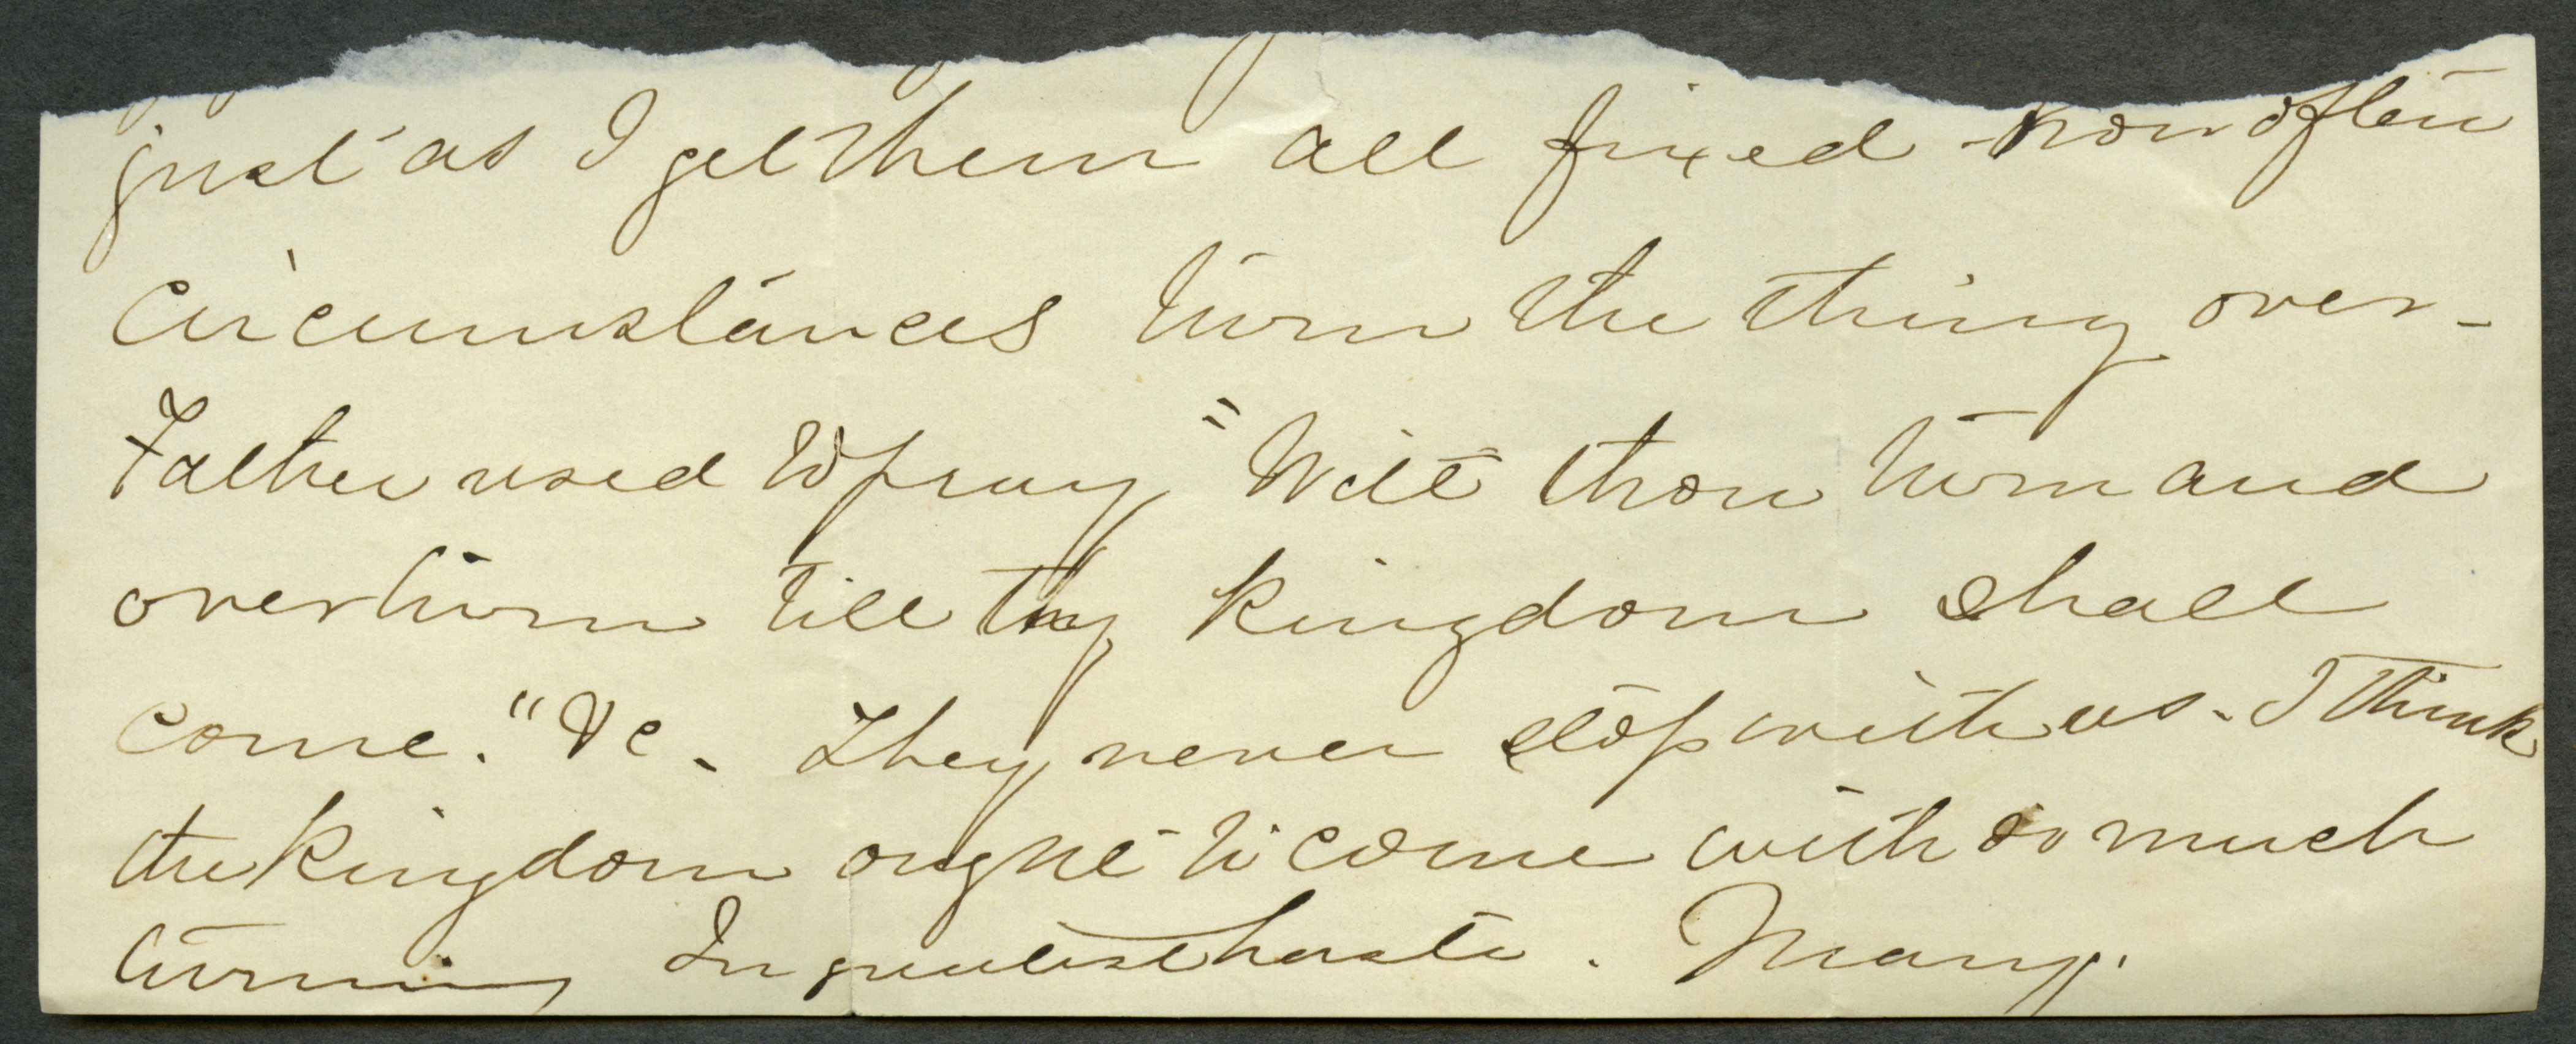 just as I get them all fixed - how often
circumstances turn the thing over -
Father used to pray "Wilt thou turn and
overturn till thy kingdom shall
come." &c. They never stop with us. I think
the kingdom ought to come with so much
turning In greatest haste. Mary.